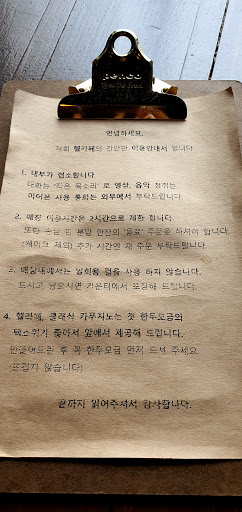 penco
안녕하세요.
저희 헬카페의 간단한 이용안내서 입니다.
1. 내부가 협소합니다
대화는 '작은 목소리' 로 영상, 음악 청취는
이어폰 사용 통화는 외부에서 부탁드립니다.
2. 매장 이용시간은 2시간으로 제한 합니다.
또한 손님 한 분당 한잔의 '음료' 주문을 하셔야 합니다.
(케이크 제외) 추가 시간엔 재 주문 부탁드립니다.
3. 매장내에서는 일회용 컵을 사용 하지 않습니다.
드시고 남으시면 카운터에서 포장해 드립니다.
4. 헬라떼, 클래식 카푸치노는 첫 한두모금의
텍스쳐가 좋아서 앞에서 제공해 드립니다.
만들어드릴 후 꼭 한두모금 먼저 드셔 주세요.
(뜨겁지 않습니다)
끝까지 읽어주셔서 감사합니다.